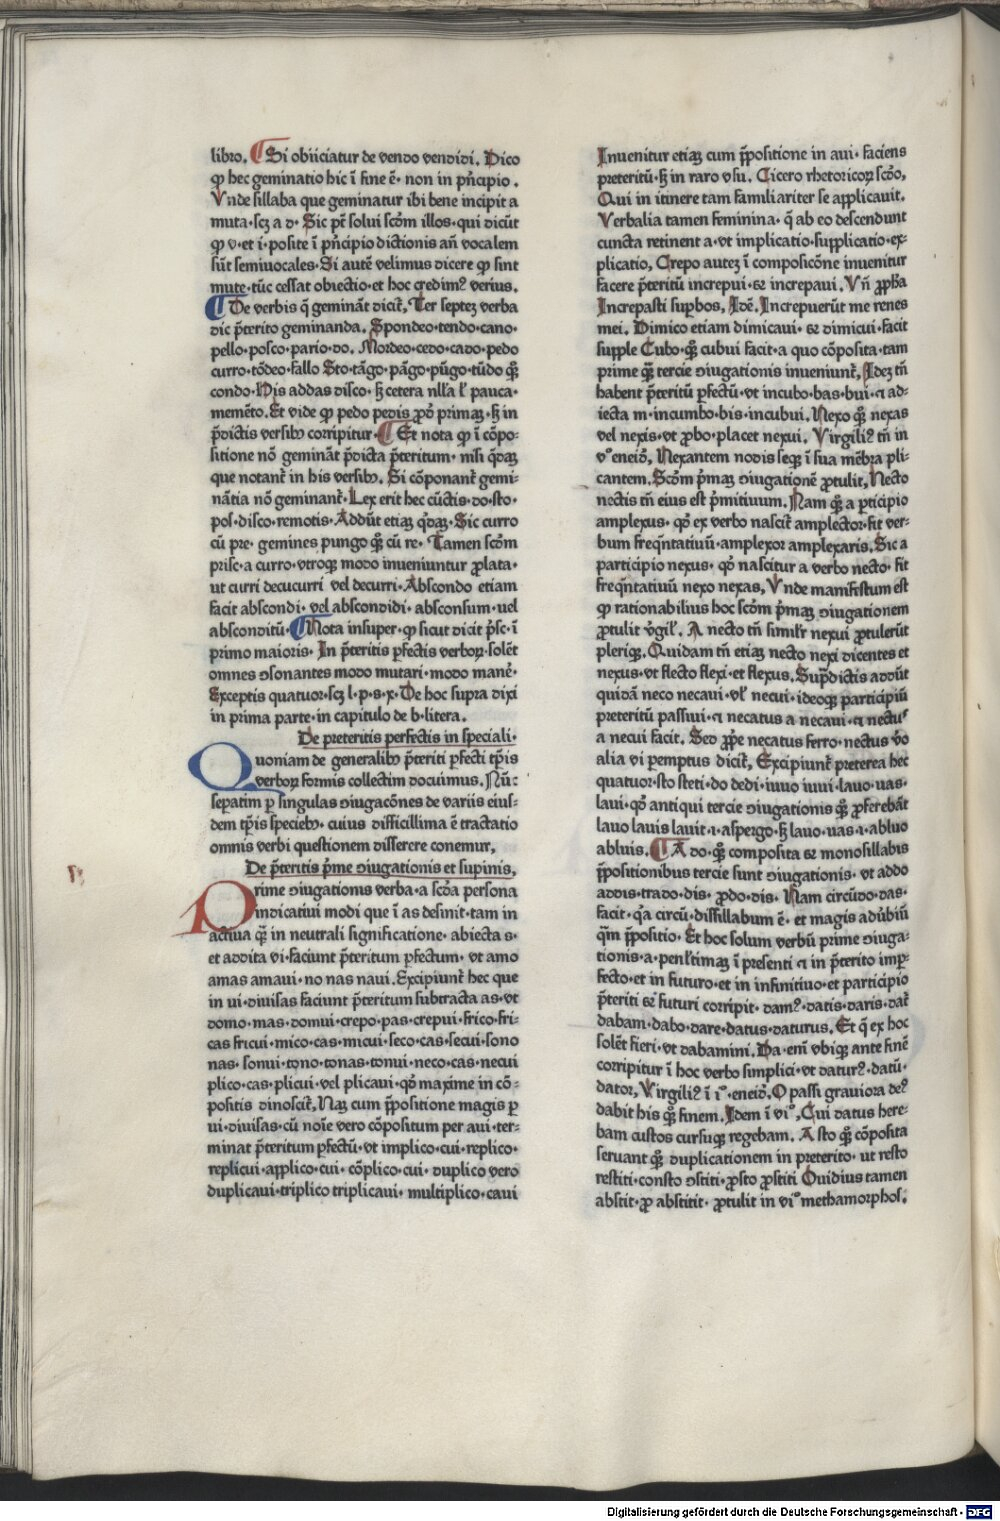 libro. Si obiiciatur de vendo vendidi. Dico
ꝙ hec geminatio hic ī fine ē· non in pn̄cipio.
Vnde sillaba que geminatur ibi bene incipit a
muta·scꝫ a d· Sic pt̄ solui scd̄m illos·qui dicūt
ꝙ v·et i·posite ī pn̄cipio dictionis an̄ vocalem
sūt semiuocales·Si autē velimus dicere ꝙ sint
mute·tūc cessat obiectio·et hoc credimꝰ verius.
De verbis q̄ gemināt dicit̄, Ter septez verba
dic p̄terito geminanda. Spondeo·tendo·cano·
pello·posco·pario·do. Mordeo·cedo·cado·pedo
curro·tōdeo·fallo Sto·tāgo·pāgo·pūgo·tūdo qꝫ
condo·His addas disco·sꝫ cetera nlla l' pauca·
memēto. Et vide ꝙ pedo pedis ꝓdꝰ primaꝫ·sꝫ in
p̄dictis versibꝰ corripitur· Et nota ꝙ ī cōpo-
sitione nō gemināt p̄dicta p̄teritum·nisi q̄daꝫ
que notant̄ in his versibꝰ. Si cōponant̄ gemi-
nātia nō geminant̄·Lex erit hec cūctis·do·sto·
pos·disco·remotis·Addūt etiaꝫ q̄daꝫ·Sic curro
cū pre·gemines pungo qꝫ cū re·Tamen scd̄m
prisc·a curro·vtroqꝫ modo inueniuntur ꝓlata·
ut curri decucurri vel decurri·Abscondo etiam
facit abscondi·vel abscondidi·absconsum·uel
absconditū· Nota insuper·ꝙ sicut dicit p̄sc·ī
primo maioris·In p̄teritis ꝑfectis verboꝝ·solēt
omnes ꝯsonantes modo mutari·modo mane᷒·
Exceptis quatuor·scꝫ l·p·s·x·De hoc supra dixi
in prima parte·in capitulo de b·litera.
De preteritis perfectis in speciali·
Quoniam de generalibꝰ p̄teriti ꝑfecti tp̄is
verboꝝ formis collectim docuimus. Nūc
separatim ꝑ singulas ꝯiugacōnes de variis eius-
dem tp̄is speciebꝰ·cuius difficillima ē tractatio
omnis verbi questionem disserere conemur,
De p̄teritis p̄me ꝯiugationis et supinis,
Prime ꝯiugationis verba·a scd̄a persona
indicatiui modi que ī as desinit·tam in
actiua qꝫ in neutrali significatione·abiecta s·
et addita vi·faciunt p̄teritum ꝑfectum·vt amo
amas amaui·no nas naui. Excipiunt̄ hec que
in ui·diuisas faciunt p̄teritum subtracta as·vt
domo·mas·domui·crepo·pas·crepui·frico·fri-
cas fricui·mico·cas·micui·seco·cas·secui·sono
nas·sonui·tono·tonas·tonui·neco·cas·necui
plico·cas·plicui·vel plicaui·qd̄ maxime in cō-
positis dinoscit̄, Naꝫ cum p̄positione magis ꝑ
ui·diuisas·cū noīe vero cōpositum per aui·ter-
minat p̄teritum ꝑfectū·vt implico·cui·replico·
replicui·applico·cui·cōplico·cui·duplico vero
duplicaui·triplico triplicaui·multiplico·caui
Inuenitur etiaꝫ cum p̄positione in aui·faciens
preteritū·sꝫ in raro vsu. Cicero rhetoricoꝝ scd̄o,
Qui in itinere tam familiariter se applicauit.
Verbalia tamen feminina·q̄ ab eo descendunt
cuncta retinent a·vt implicatio·supplicatio·ex-
plicatio, Crepo autez ī composicōne inuenitur
facere p̄teritū increpui·et increpaui. Vn̄ ꝓpha
Increpasti suꝑbos, Idē. Increpuerūt me renes
mei. Dimico etiam dimicaui·et dimicui·facit
supple Cubo·qꝫ cubui facit·a quo cōposita·tam
prime qꝫ tercie ꝯiugationis inueniunt̄, Ideꝫ tn̄
habent p̄teritū ꝑfectū·vt incubo·bas·bui·et ad-
iecta m·incumbo·bis·incubui. Nexo qꝫ nexas
vel nexis·vt ꝓbo·placet nexui. Virgiliꝰ tn̄ in
vͦ eneid̄, Nexantem nodis seqꝫ ī sua mēbra pli-
cantem. Scd̄m p̄maꝫ ꝯiugationē ꝓtulit, Necto
nectis tn̄ eius est p̄mitiuum. Nam qꝫ a ꝑticipio
amplexus·qd̄ ex verbo nascit̄ amplector·fit ver-
bum freqn̄tatiuū·amplexor amplexaris. Sic a
participio nexus·qd̄ nascitur a verbo necto·fit
freqn̄tatiuū nexo nexas, Vnde manifestum est
ꝙ rationabilius hoc scd̄m p̄maꝫ ꝯiugationem
ꝓtulit v̄gil'. A necto tn̄ simil'r nexui ꝓtulerūt
pleriqꝫ. Quidam tn̄ etiaꝫ necto nexi dicentes et
nexus·vt flecto flexi·et flexus. Sup̄dictis addūt
quidā neco necaui·vl' necui·ideoqꝫ participiū
preteritū passiui·et necatus a necaui·et nectꝰ
a necui facit. Sed ꝓpe necatus ferro·nectus v̄o
alia vi peremptus dicit̄, Excipiunt̄ preterea hec
quatuor·sto steti·do dedi·iuuo iuui·lauo·uas·
laui·qd̄ antiqui tercie ꝯiugationis qꝫ ꝓferebāt
lauo lauis lauit·i·aspergo·sꝫ lauo·uas·i·abluo
abluis. A do·qꝫ composita et monosillabis
p̄positionibus tercie sunt ꝯiugationis·vt addo
addis·trado·dis·ꝓdo·dis·Nam circūdo·das·
facit·q̄a circū·dissillabum ē·et magis adūbiū
qm̄ p̄positio·Et hoc solum verbū prime ꝯiuga-
tionis·a·penl'timaꝫ ī presenti et in p̄terito imꝑ-
fecto·et in futuro·et in infinitiuo·et participio
p̄teriti et futuri corripit·damꝰ·datis·daris·dat̄
dabam·dabo·dare·datus·daturus. Et q̄ ex hoc
solēt fieri·vt dabamini. Da·eni᷒ vbiqꝫ ante finē
corripitur ī hoc verbo simplici·vt daturꝰ·datū·
dator, Virgiliꝰ ī iͦ·eneid̄. O passi grauiora deꝰ
dabit his qꝫ finem. Idem ī viͦ, Cui datus here-
bam custos cursusqꝫ regebam. A sto qꝫ cōposita
seruant qꝫ duplicationem in preterito·ut resto
restiti·consto ꝯstiti·ꝓsto ꝓstiti Ouidius tamen
abstit·ꝓ abstitit·ꝓtulit in viͦ methamorphos.
Digitalisierung gefördert durch die Deutsche Forschungsgemeinschaft - DFG